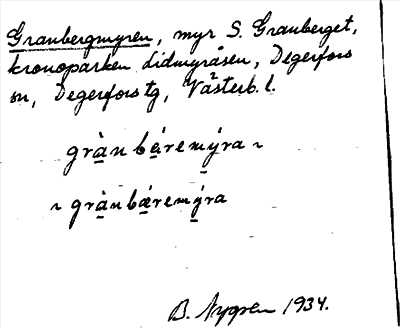 Granbergmyren, myr S. Granberget,
kronoparken Lidmyråsen, Degerfors
sn, Degerfors tg, Västerb. l.
grànbæ̀remýra ~
~ grànbæ̀remýra
B. Nygren 1934.